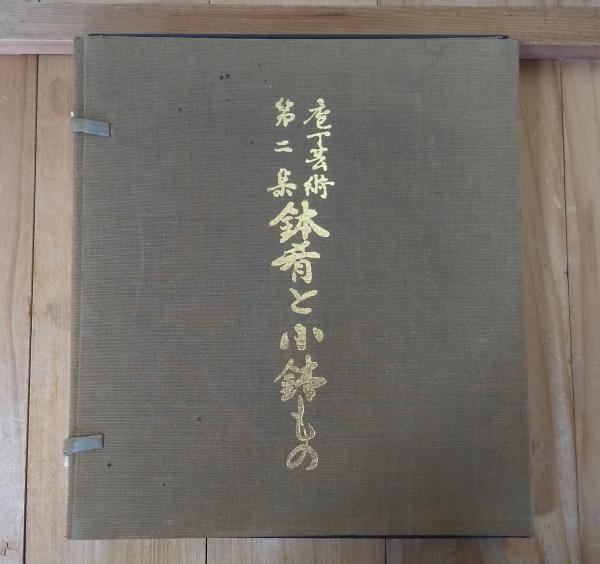 庖丁芸術
第二集
鉢肴と小鉢もの